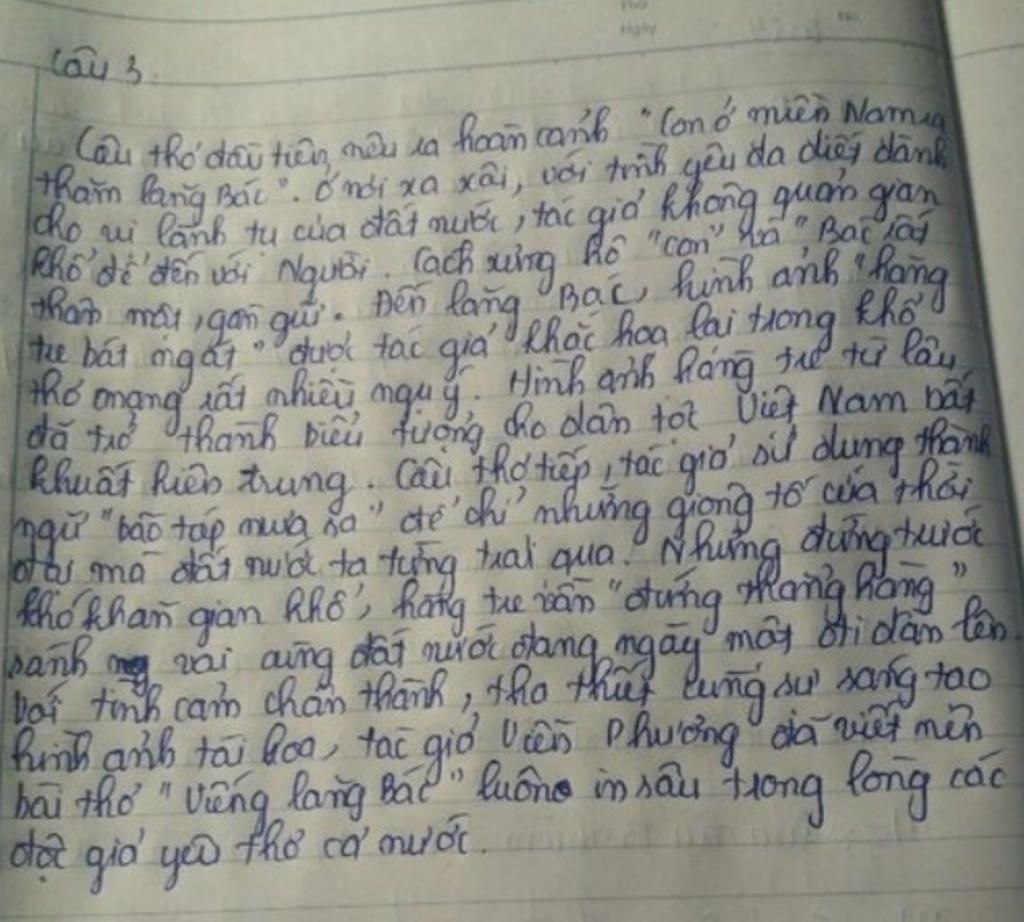 Thứ
Ngày
No.
Câu 3.
Câu thơ đầu tiên, nêu ra hoàn cảnh "Con ở miền Nam ra
thăm lăng Bác". Ở nơi xa xôi, với tình yêu da diết dành
cho vị lãnh tụ của đất nước, tác giả không quản gian
khổ để đến với Người. Cách xưng hô "con" và "Bác" rất
thân mật, gần gũi. Đến lăng Bác, hình ảnh "hàng
tre bát ngát" được tác giả khắc họa lại trong khổ
thơ mang rất nhiều ngụ ý. Hình ảnh hàng tre từ lâu
đã trở thành biểu tượng cho dân tộc Việt Nam bất
khuất kiên trung. Câu thơ tiếp, tác giả sử dụng thành
ngữ "bão táp mưa sa" để chỉ những giông tố của thời
đại mà đất nước ta từng trải qua. Nhưng đứng trước
khó khăn gian khổ, hàng tre vẫn "đứng thẳng hàng"
sánh vai cùng đất nước đang ngày một đi dần lên.
Với tình cảm chân thành, tha thiết cùng sự sáng tạo
hình ảnh tài hoa, tác giả Viễn Phương đã viết nên
bài thơ "Viếng lăng Bác" luôn in sâu trong lòng các
độc giả yêu thơ cả nước.